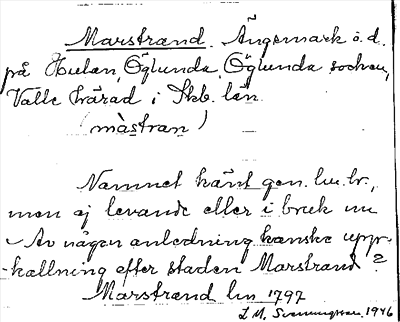 Marstrand. Ängsmark ö. d.
på Hulan, Öglunda, Öglunda socken,
Valle härad i Skb. län.
(màstran)
Namnet känt gen. lm. br.,
men ej levande eller i bruk nu
Av någon anledning kanske upp-
-kallning efter staden Marstrand?
Marstrand lm 1797
L. M. Svenungsson. 1946